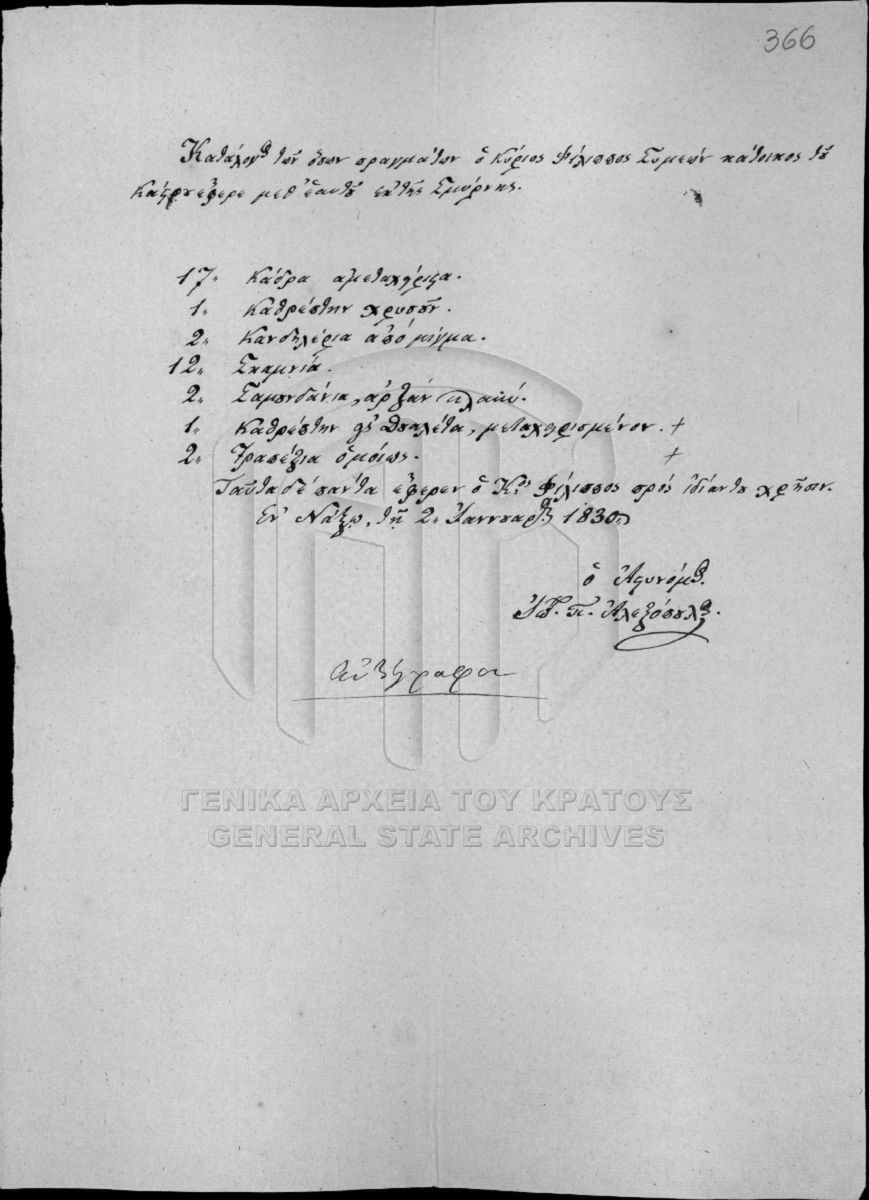 366
Κατάλογος τῶν ὅσων πραγμάτων ὁ Κύριος Φίλιππος Συμεών κάτοικος τοῦ
Κάστρου ἔφερε μεθ' ἑαυτοῦ ἐκ τῆς Σμύρνης.
17,, Κάδρα ἀμεταχείριστα.
1,, Καθρέπτην χρυσοῦν.
2,, Κανδηλέρια ἀπό μίγμα.
12,, Σκαμνία.
2,, Σαμουδάνια, ἀρζάν πλακέ.
1,, Καθρέπτην μεταχειρισμένον. +
2,, Τραπέζια ὁμοίως. +
Ταῦτα δέ πάντα ἔφερεν ὁ Κος Φίλιππος πρός ἰδίαν του χρῆσιν.
Ἐν Νάξῳ, τῇ 2,, Ἰαννουαρίου 1830
ὁ Ἀστυνόμος.
Π. Ἀλεξόπουλος.
ΓΕΝΙΚΑ ΑΡΧΕΙΑ ΤΟΥ ΚΡΑΤΟΥΣ
GENERAL STATE ARCHIVES